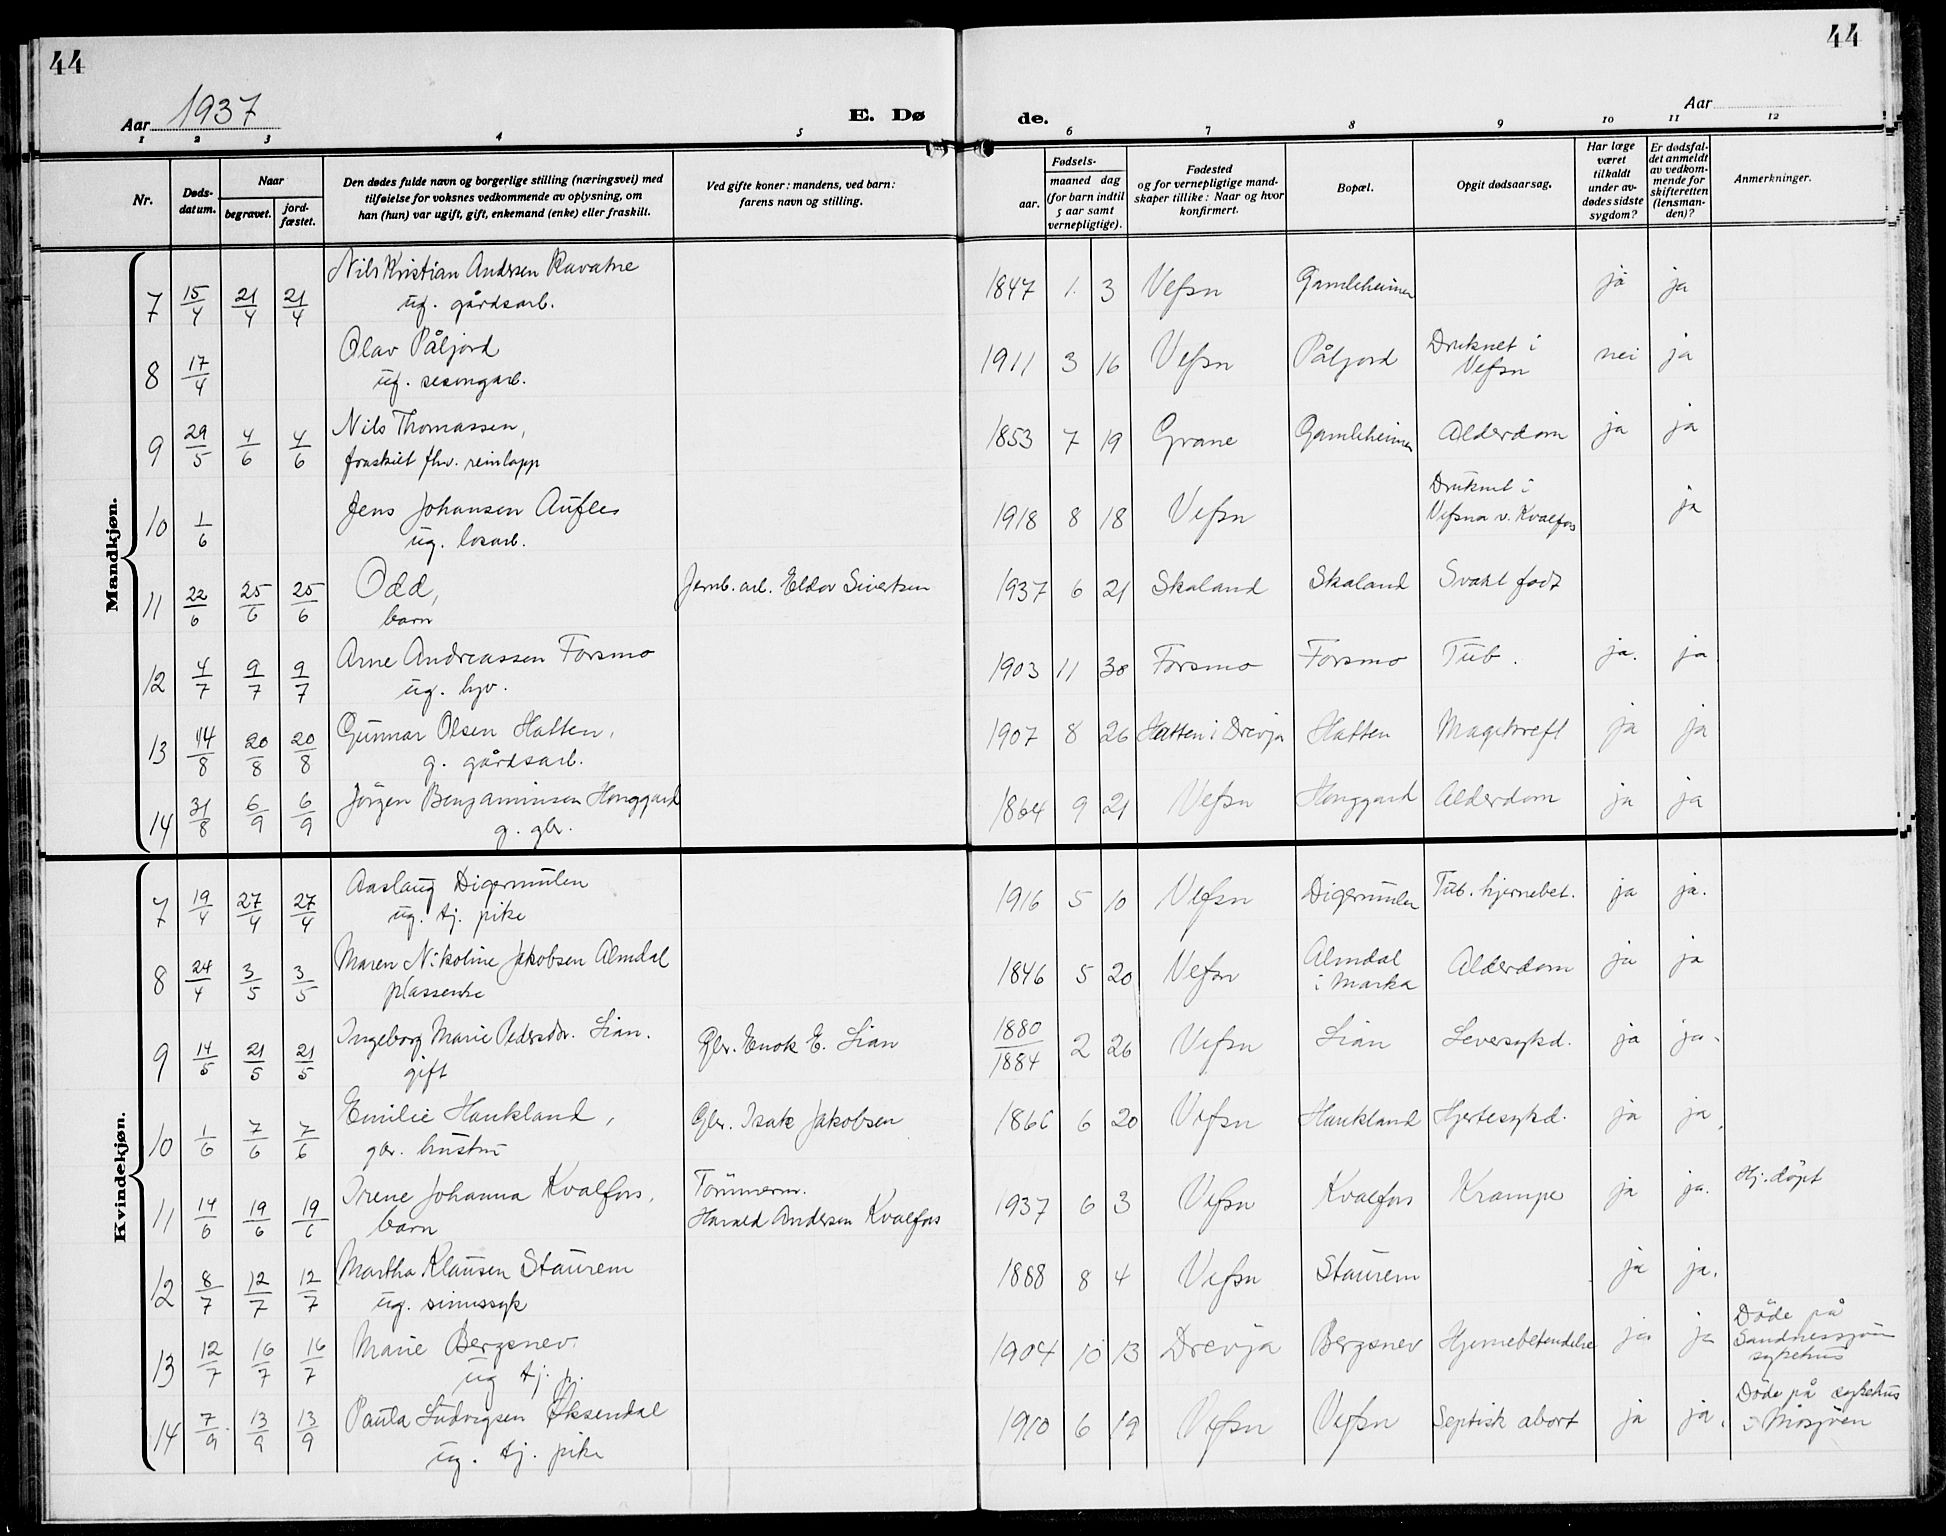 44
44
Aar 1937
E. Døde.
Aar
1 2 3 4 5 6 7 8 9 10 11 12
Nr.
Døds-
datum.
Naar
begravet.
jord-
fæstet.
Den dødes fulde navn og borgerlige stilling (næringsvei) med
tilføielse for voksnes vedkommende av oplysning, om
han (hun) var ugift, gift, enkemand (enke) eller fraskilt.
Ved gifte koner: mandens, ved barn:
farens navn og stilling.
Fødsels-
aar.
maaned dag
(for barn indtil
5 aar samt
vernepligtige).
Fødested
og for vernepligtige mand-
skaper tillike: Naar og hvor
konfirmert.
Bopæl.
Opgit dødsaarsag.
Har læge
været
tilkaldt
under av-
dødes sidste
sygdom?
Er dødsfal-
det anmeldt
av vedkom-
mende for
skifteretten
(lensman-
den)?
Anmerkninger.
Mandkjøn.
7 15/4 21/4 21/4 Nils Kristian Andersen Ravatne 1847 1. 3 Vefsn Gamleheimen ja ja
ug. gårdsarb.
8 17/4 Olav Påljord 1911 3 16 Vefsn Påljord Druknet i nei ja
ug. sesongarb. Vefsn
9 29/5 4/6 4/6 Nils Thomassen, 1853 7 19 Grane Gamleheimen Alderdom ja ja
fraskilt fhv. reinlapp
10 1/6 Jens Johansen Aufles 1918 8 18 Vefsn Druknet i ja
ug. losarb. Vefsna v. Kvalfors
11 22/6 25/6 25/6 Odd, Jernb. arb. Eldor Sivertsen 1937 6 21 Skaland Skaland Svakt født
barn
12 4/7 9/7 9/7 Arne Andreassen Forsmo 1903 11 30 Forsmo Forsmo Tub. ja. ja
ug. hjv.
13 14/8 20/8 20/8 Gunnar Olsen Hatten, 1907 8 26 Hatten i Drevja Hatten Magekreft ja ja
g. gårdsarb.
14 31/8 6/9 6/9 Jörgen Benjaminsen Honggard 1864 9 21 Vefsn Honggard Alderdom ja ja
g. gbr.
Kvindekjøn.
7 19/4 27/4 27/4 Aaslaug Digermulen 1916 5 10 Vefsn Digermulen Tub. hjernebet. ja ja.
ug. tj. pike
8 24/4 3/5 3/5 Maren Nikoline Jakobsen Almdal 1846 5 20 Vefsn Almdal i Marka Alderdom ja ja
plassenke
9 14/5 21/5 21/5 Ingeborg Marie Pedersdtr. Lian. Gbr. Enok E. Lian 1880/1884 2 26 Vefsn Lian Leversykd. ja ja.
gift
10 1/6 7/6 7/6 Emilie Haukland, Gbr. Isak Jakobsen 1866 6 20 Vefsn Haukland Hjertesykd. ja ja.
gbr. hustru
11 14/6 19/6 19/6 Irene Johanna Kvalfors, Tömmerm. 1937 6 3 Vefsn Kvalfors Krampe ja ja. Hj. döpt
barn Harald Andersen Kvalfors
12 8/7 12/7 12/7 Martha Klausen Staurem 1888 8 4 Vefsn Staurem ja ja.
ug. sinnssyk
13 12/7 16/7 16/7 Marie Bergsnev. 1904 10 13 Drevja Bergsnev Hjernebetendelse ja ja Döde på Sandnessjöen sykehus
ug tj. p.
14 7/9 13/9 13/9 Paula Ludvigsen Öksendal 1910 6 19 Vefsn Vefsn Septisk abort ja ja. Döde på sykehus i Mosjöen
ug. tj. pike